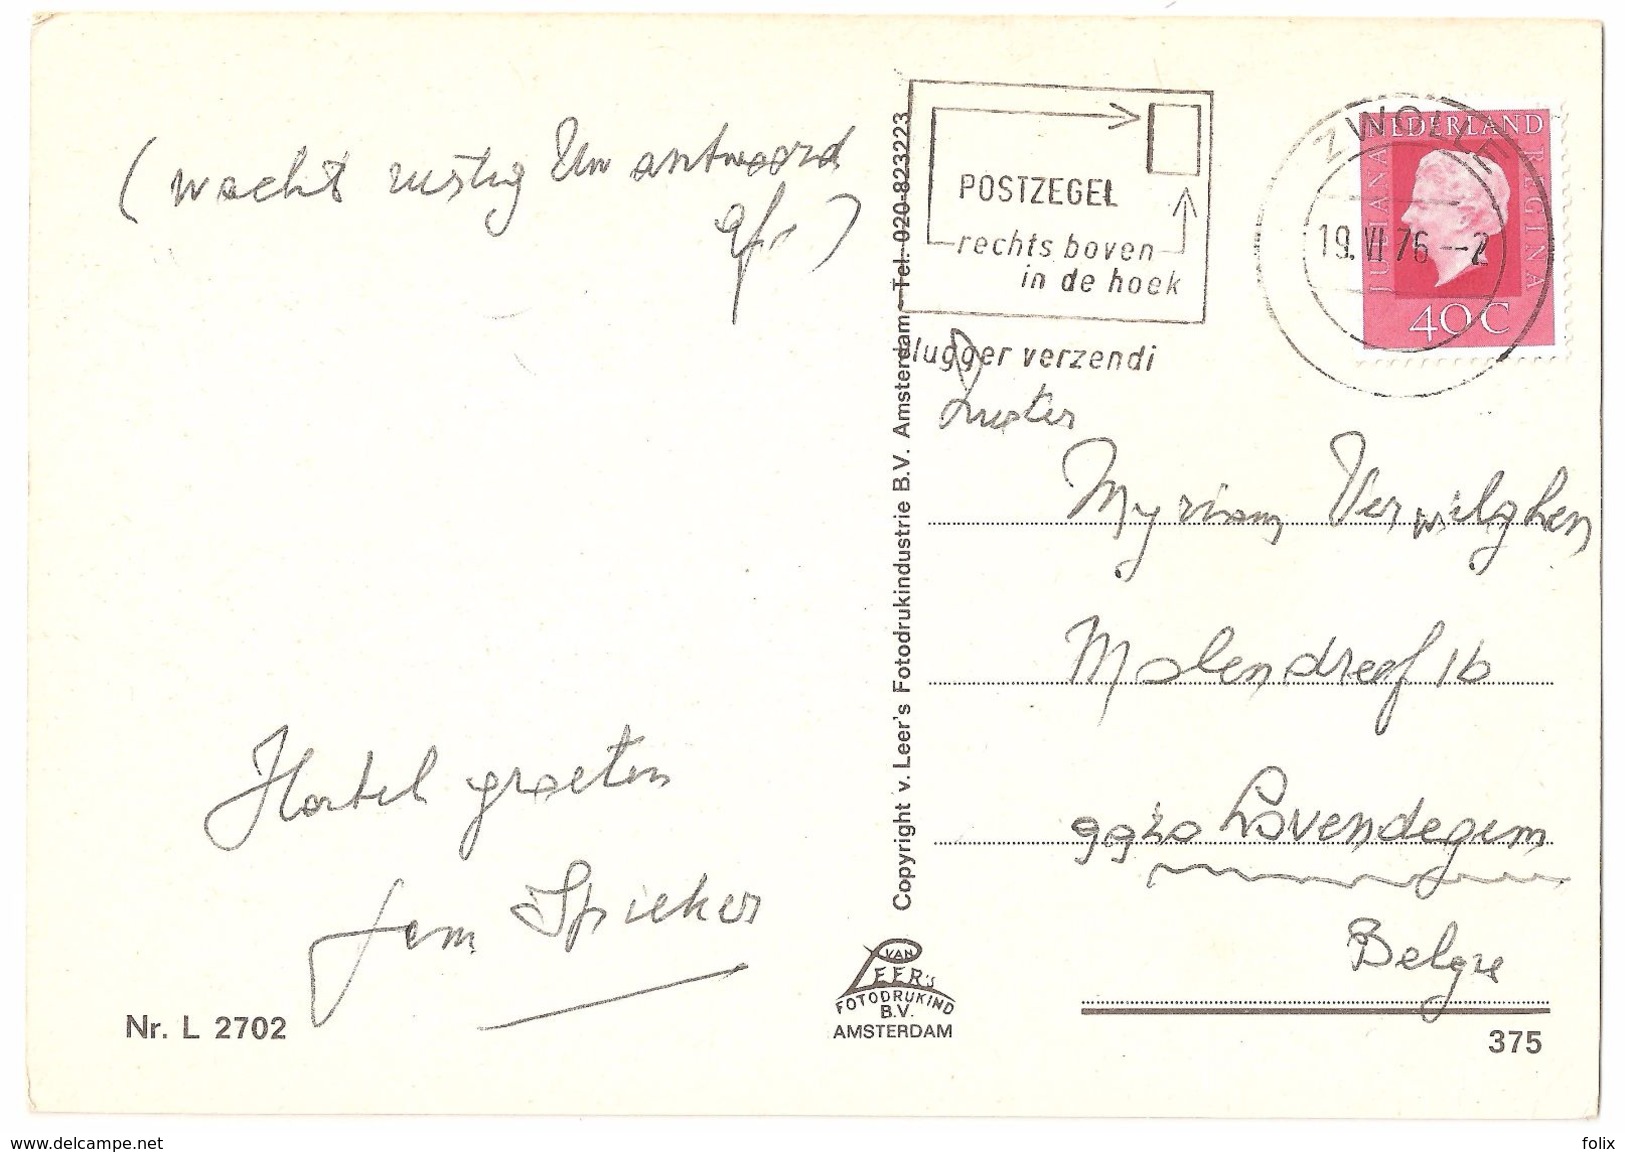 (wacht rustig Uw antwoord
af..)
Hartel groeten
Jem Spieker
Nr. L 2702
Copyright v. Leer's Fotodrukindustrie B.V. Amsterdam - Tel. 020-823223
VAN
LEER'S
FOTODRUKIND
B.V.
AMSTERDAM
POSTZEGEL
rechts boven
in de hoek
vlugger verzendi
ZWOLLE
19.VI 76 --2
NEDERLAND
JULIANA REGINA
40C
Zuster
Myriam Verwilghen
Molendreef 16
9920 Lovendegem
Belgie
375
www.delcampe.net
folix